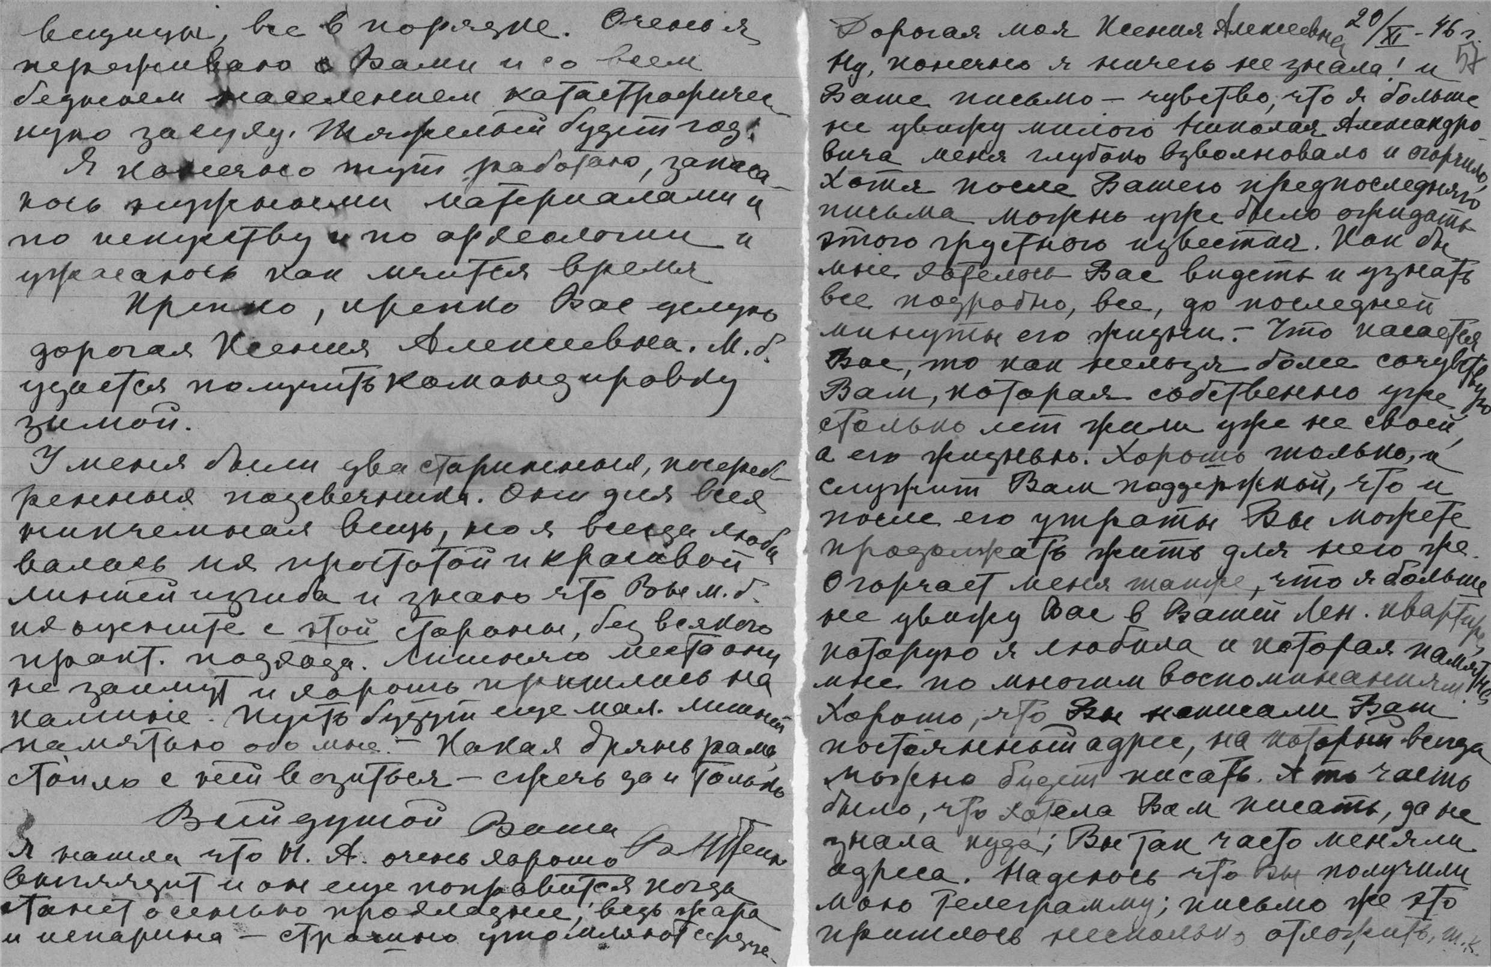 вещицы, все в порядке. Очень я
переживаю с Вами и со всем
бедным населением катастрофичес-
кую засуху. Тяжелый будет год!
Я конечно тут работаю, запаса-
юсь нужными материалами и
по искусству и по археологии и
ужасаюсь как мчится время
Крепко, крепко Вас целую
дорогая Ксения Алексеевна. М.б.
удастся получить командировку
зимой.
У меня были два старинныя, посереб-
ренныя подсвечника. Они для всех
никчемная вещь, но я всегда любо
валась их простотой и красивой
линией изгиба и знаю что Вы м.б.
их оцените с этой стороны, без всякого
практ. подхода. Лишняго места они
не займут и хорошо пришлись на
камине. Пусть будут еще мал. лишней
памятью обо мне. — Какая дрянь рама,
стоило с ней возиться — сжечь да и только
Всей душой Ваша
Я нашла что Н. А. очень хорошо
выглядит и он еще поправится когда
станет осенью прохладнее; ведь жара
и испарина — страшно утомляют сердце.
Дорогая моя Ксения Алексеевна 20/XI - 46 г.
57
Ну, конечно я ничего не знала! и
Ваше письмо — чувство, что я больше
не увижу милого Николая Александро-
вича меня глубоко взволновало и огорчило,
Хотя после Вашего предпоследняго
письма можно уже было ожидать
этого грустного известия. Как бы
мне хотелось Вас видеть и узнать
все подробно, все, до последней
минуты его жизни. — Что касается
Вас, то как нельзя более сочувствую
Вам, которая собственно уже
столько лет жили уже не своей,
а его жизнью. Хорошо только, и
служит Вам поддержкой, что и
после его утраты Вы можете
продолжать жить для него же.
Огорчает меня также, что я больше
не увижу Вас в Вашей Лен. квартире,
которую я любила и которая памятна
мне по многим воспоминаниям.
Хорошо, что Вы написали Ваш
постоянный адрес, на который всегда
можно будет писать. А то часто
было, что хотела Вам писать, да не
знала куда; Вы так часто меняли
адреса. Надеюсь что Вы получили
мою телеграмму; письмо же это
пришлось несколько отложить, т.к.